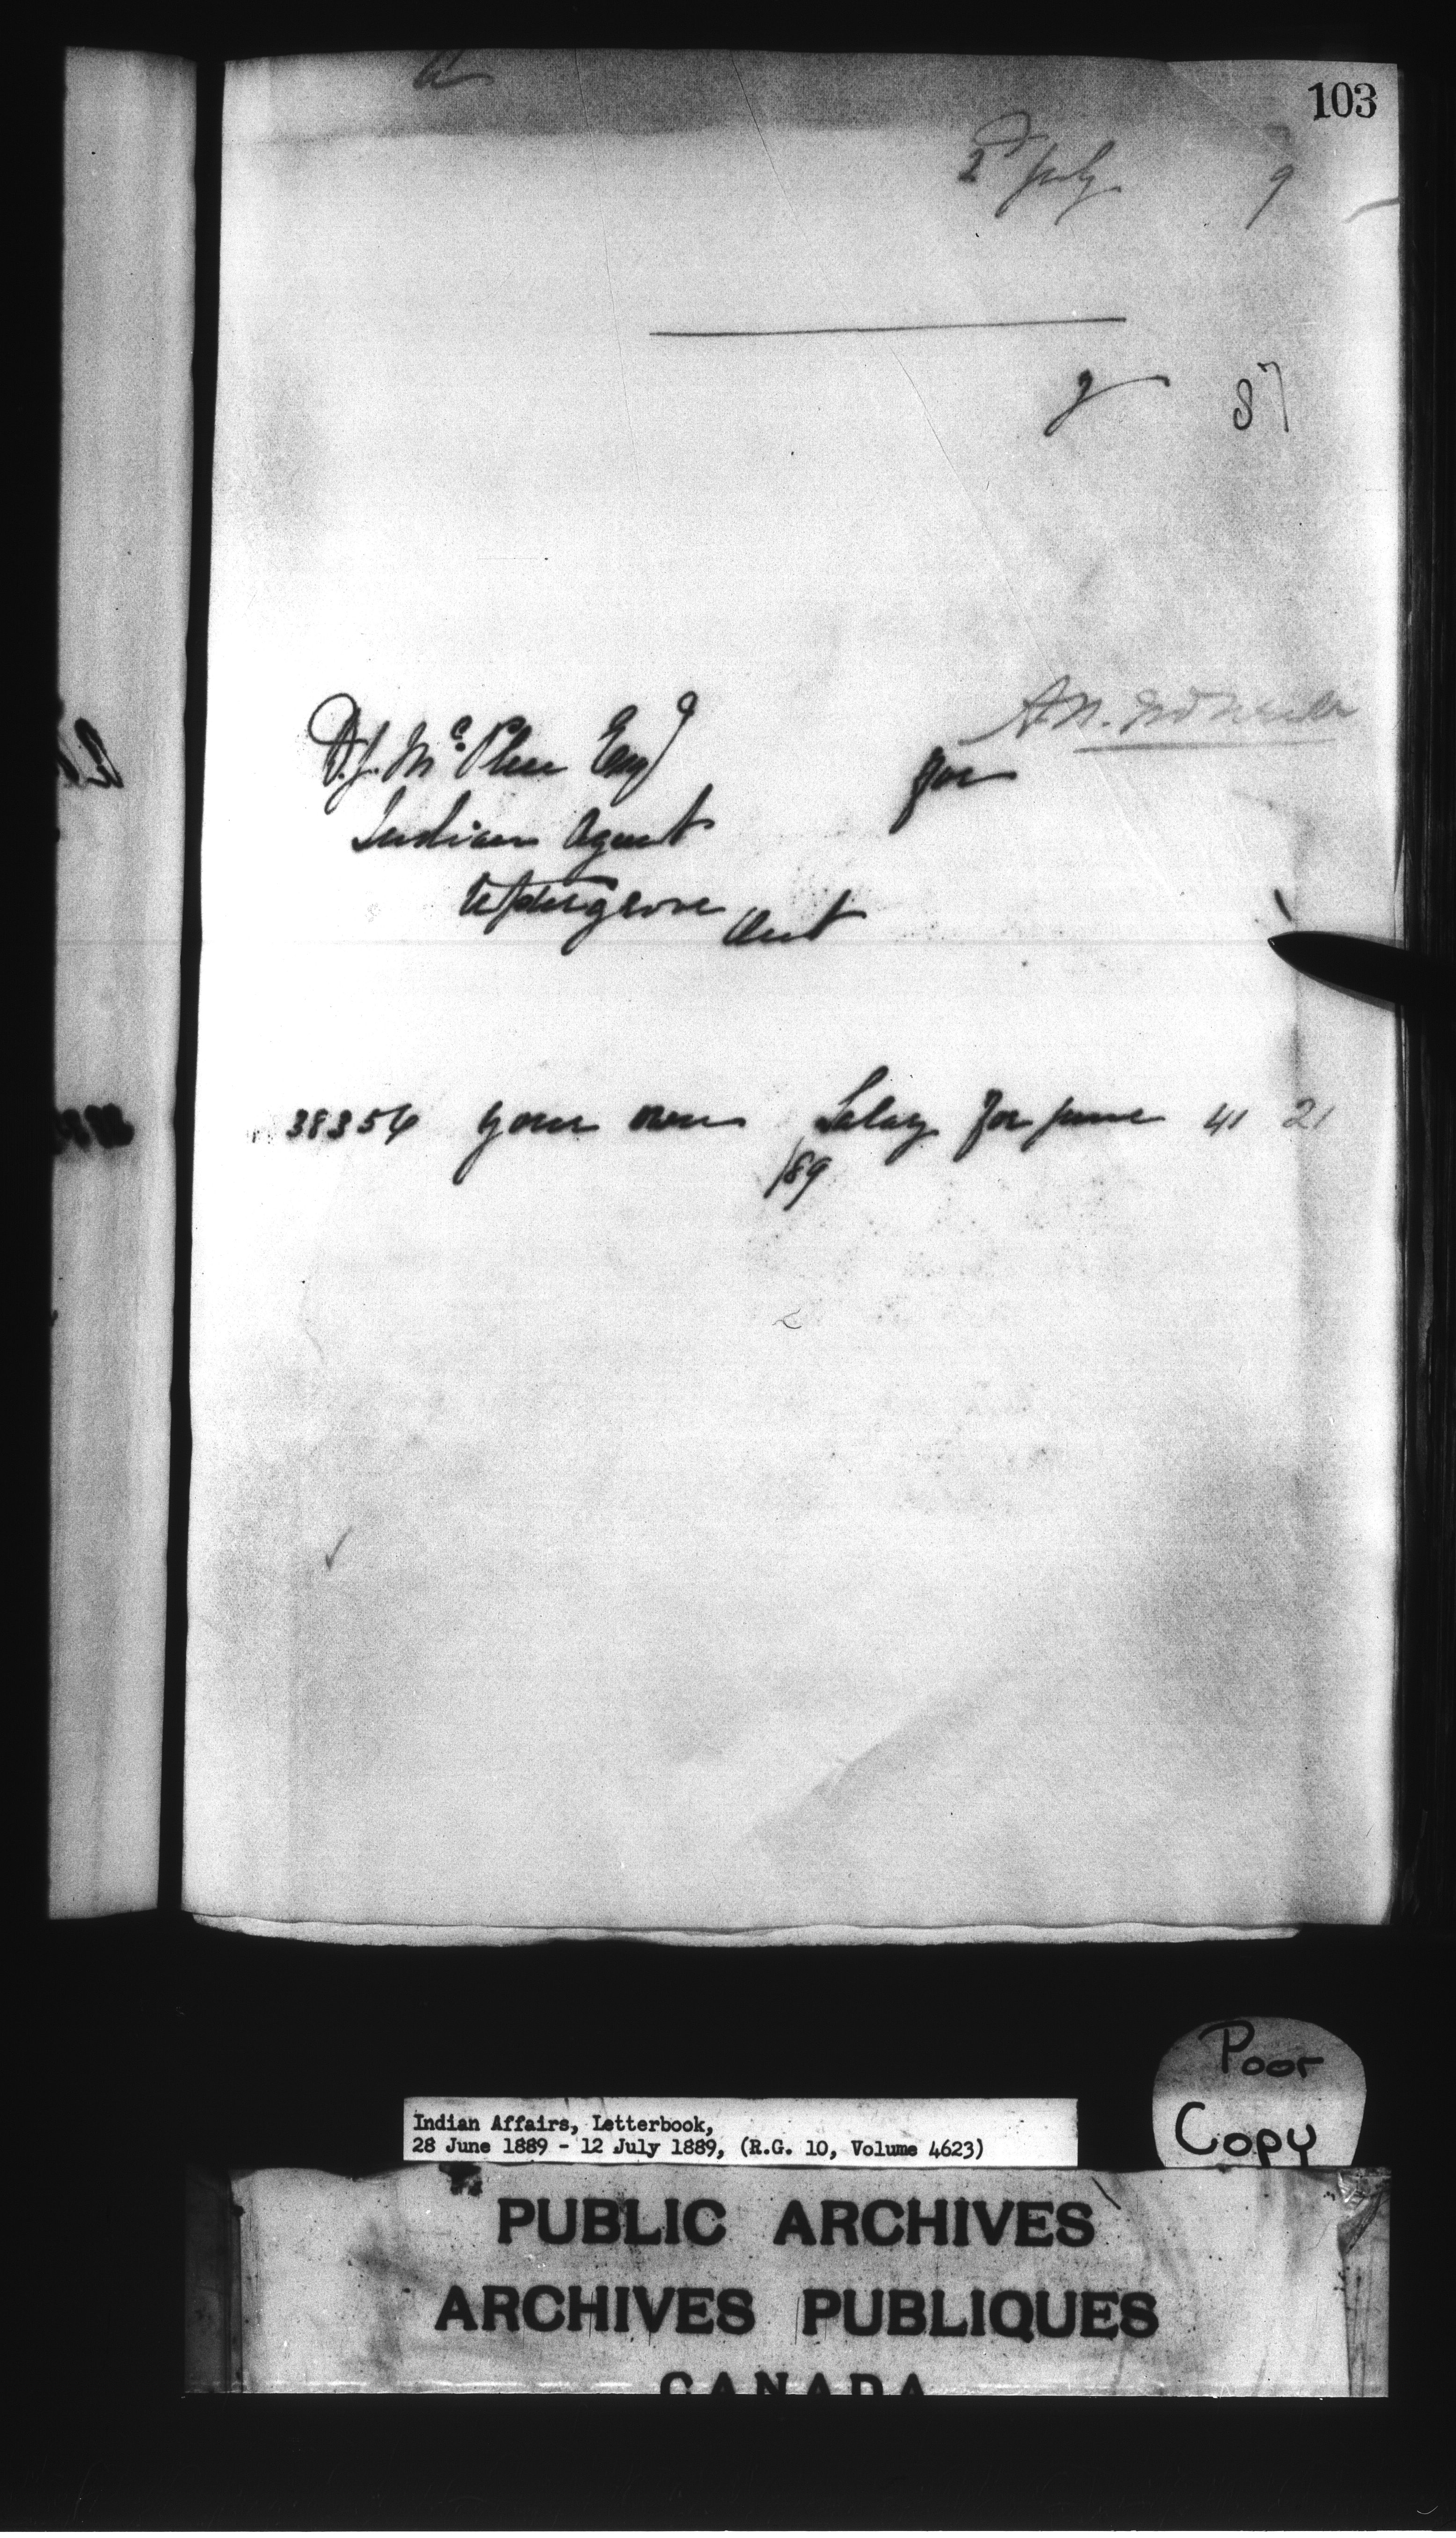 103
2d July 9
87
D.J. McPhee Esqr
for
Indian Agent
Uptergrove Ont
38354 your own Salary for June 41 21
/89
Poor
Copy
Indian Affairs, Letterbook,
28 June 1889 - 12 July 1889, (R.G. 10, Volume 4623)
PUBLIC ARCHIVES
ARCHIVES PUBLIQUES
CANADA